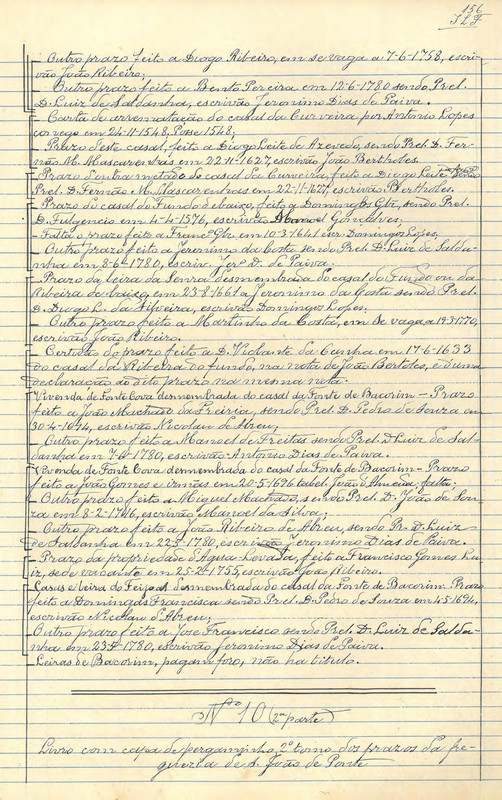 156
— Outro prazo feito a Diogo Ribeiro, em se vaga a 7-6-1758, escri-
vão João Ribeiro;
— Outro prazo feito a Bento Pereira em 12-6-1780 sendo Prel.
D. Luiz de Saldanha, escrivão Jeronimo Dias de Paiva.
— Carta de arrematação do casal da Curveira por Antonio Lopes
conego em 24-11-1548, Posse 1548,
— Prazo deste casal, feito a Diogo Leite de Azevedo, sendo Prel. D. Fer-
não M. Mascarenhas em 22-11-1627, escrivão João Bertholes.
Prazo d'outra metade do casal da Curveira feito a Diogo Leite
Prel. D. Fernão M. Mascarenhas em 22-11-1627 escrivão Bertholes.
— Prazo do casal do Fundo debaixo, feito a Domingos Glz, sendo Prel.
D. Fulgencio em 4-4-1576, escrivão Manoel Gonçalves;
— Falta o prazo feito a Francº Glz. em 10-3-1641 escr. Domingos Lopes,
— Outro prazo feito a Jeronimo da Costa sendo Prel. D. Luiz de Salda-
nha em 8-6-1780, escriv. Jerº D. de Paiva.
— Prazo da leira da Senra desmembrada do casal do Fundo ou da
Ribeira de baixo, em 23-8-1661 a Jeronimo da Costa sendo Prel.
D. Diogo L. da Silveira, escrivão Domingos Lopes;
— Outro prazo feito a Martinho da Costa, em se vaga a 19-3-1770,
escrivão João Ribeiro.
— Certidão do prazo feito a D. Violante da Cunha em 17-6-1633
do casal da Ribeira do fundo, na nota de João Bertoles, e d'uma
declaração ao dito prazo na mesma nota.
Vivenda de Fonte Cova desmembrada do casal da Fonte de Bacorim — Prazo
feito a João Machado da Freiria, sendo Prel. D. Pedro de Souza em
30-4-1694, escrivão Nicolau de Abreu;
— Outro prazo feito a Manoel de Freitas sendo Prel. D. Luiz de Sal-
danha em 1780, escrivão Antonio Dias de Paiva.
Vivenda de Fonte Cova desmembrada do casal da Fonte de Bacorim — Prazo
feito a João Gomes e irmãs em 20-5-1696 tabel. João d'Almeida; falta;
— Outro prazo feito a Miguel Machado, sendo Prel. D. João de Sou-
za em 8-2-1706, escrivão Manoel da Silva;
— Outro prazo feito a João Ribeiro de Abreu, sendo Pr. D. Luiz
de Saldanha em 22-5-1780, escrivão Jeronimo Dias de Paiva.
— Prazo da propriedade d'Agua-Levada, feito a Francisco Gomes Lu-
iz, sede vacante em 25-2-1755, escrivão João Ribeiro.
Casas e leira do Feijoal desmembrada do casal da Fonte de Bacorim. Prazo
feito a Domingas Francisca sendo Prel. D. Pedro de Souza em 4-5-1694,
escrivão Nicolau d'Abreu,
Outro prazo feito a José Francisco sendo Prel. D. Luiz de Salda-
nha em 1780, escrivão Jeronimo Dias de Paiva.
Leiras de Bacorim, pagam foro, não ha titulo.
Nº 10 (2ª parte)
Livro com capa de pergaminho, 2º tomo dos prazos da fre-
guezia de S. João de Ponte